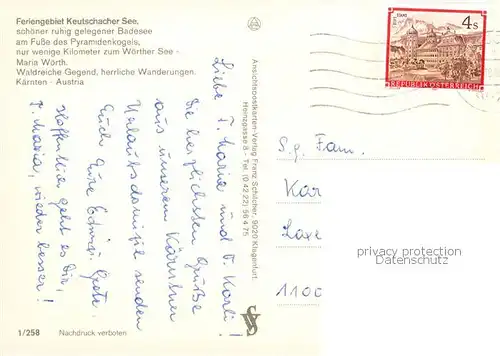 Feriengebiet Keutschacher See,
schöner ruhig gelegener Badesee
am Fuße des Pyramidenkogels,
nur wenige Kilometer zum Wörther See -
Maria Wörth.
Waldreiche Gegend, herrliche Wanderungen.
Kärnten - Austria
Liebe T. Maria und O. Karli!
Die herzlichsten Grüße
aus unserem Kärntner
Urlaubsdomizil senden
Euch Eure
Hoffentlich geht es Dir,
T. Maria, wieder besser!
1/258 Nachdruck verboten
Ansichtspostkarten-Verlag Franz Schilcher, 9020 Klagenfurt,
Heinzgasse 8 - Tel. (0 42 22) 56 4 75
4s
REPUBLIK ÖSTERREICH
S.g. Fam.
Kar
Laxe
1100
privacy protection
Datenschutz